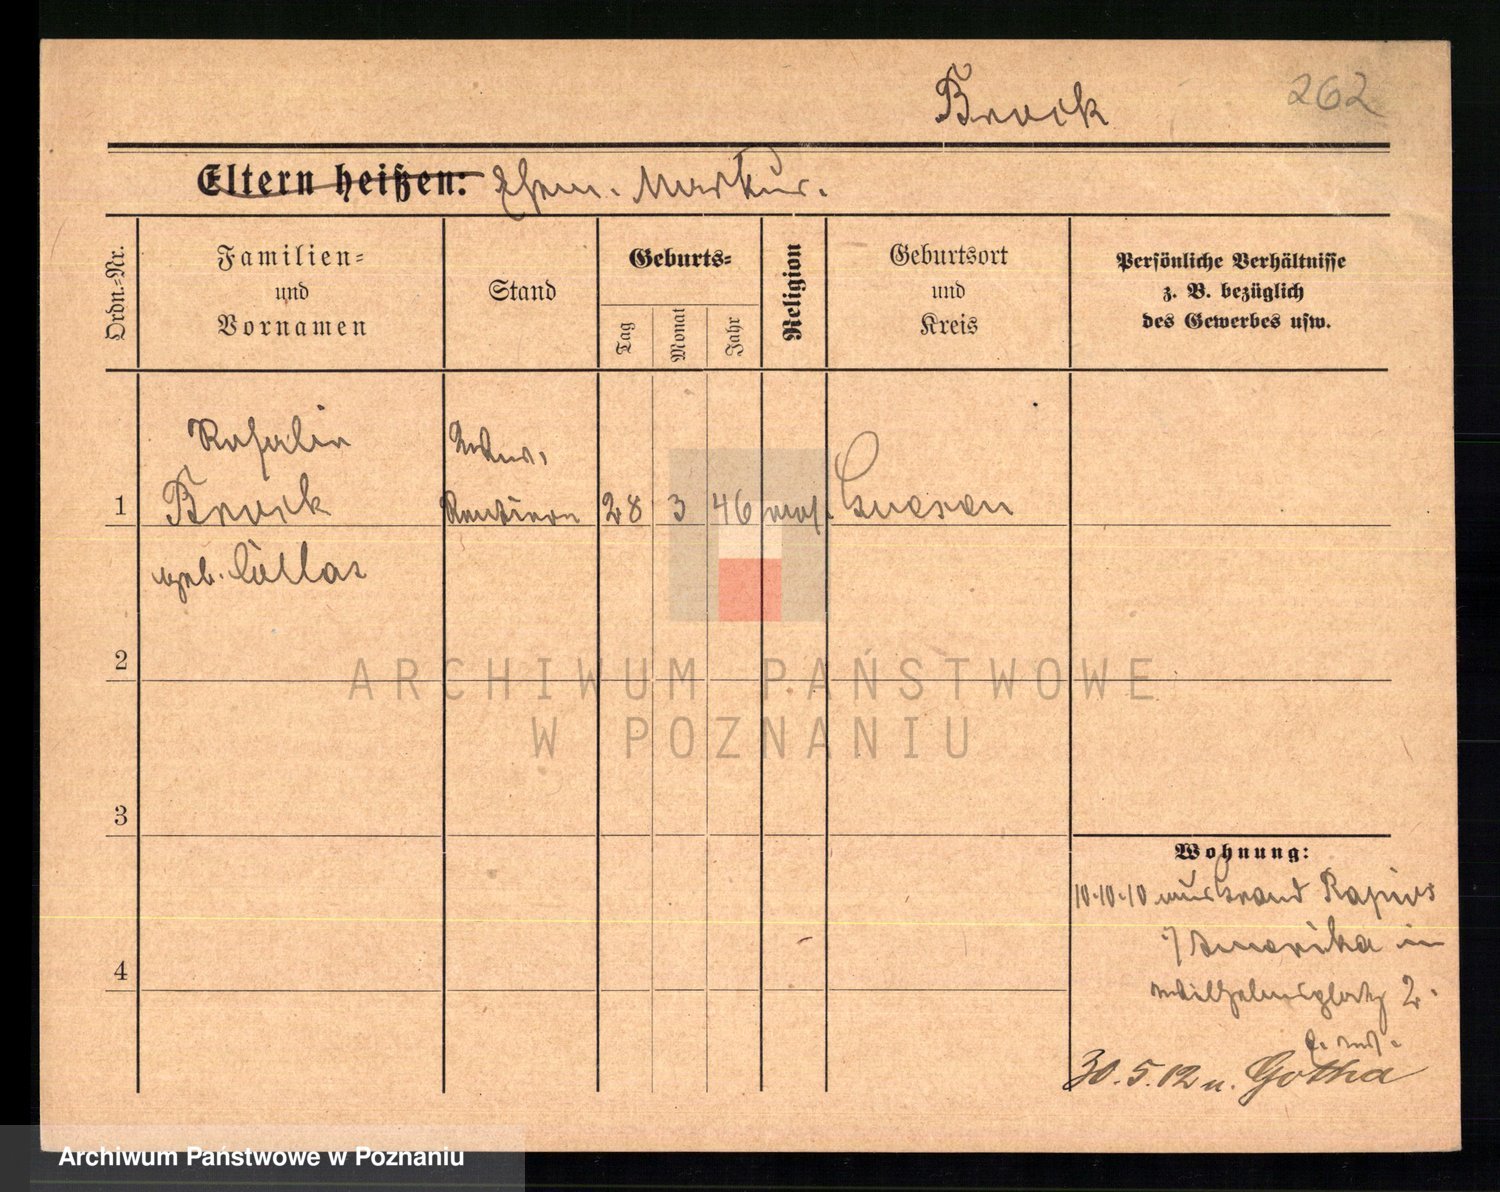 Brock 262
Eltern heißen: Ehem. Markus.
Ordn.=Nr.
Familien=
und
Vornamen
Stand
Geburts=
Tag
Monat
Jahr
Religion
Geburtsort
und
Kreis
Persönliche Verhältnisse
z. B. bezüglich
des Gewerbes usw.
Rosalie
1 Brock Rentiere 28 3 46 mos. Gnesen
geb.
2
3
4
Wohnung:
10.10.10 aus Grand Rapids
Amerika in
Wilhelmsplatz 2.
30.5.12 n. Gotha
ARCHIWUM PAŃSTWOWE
W POZNANIU
Archiwum Państwowe w Poznaniu